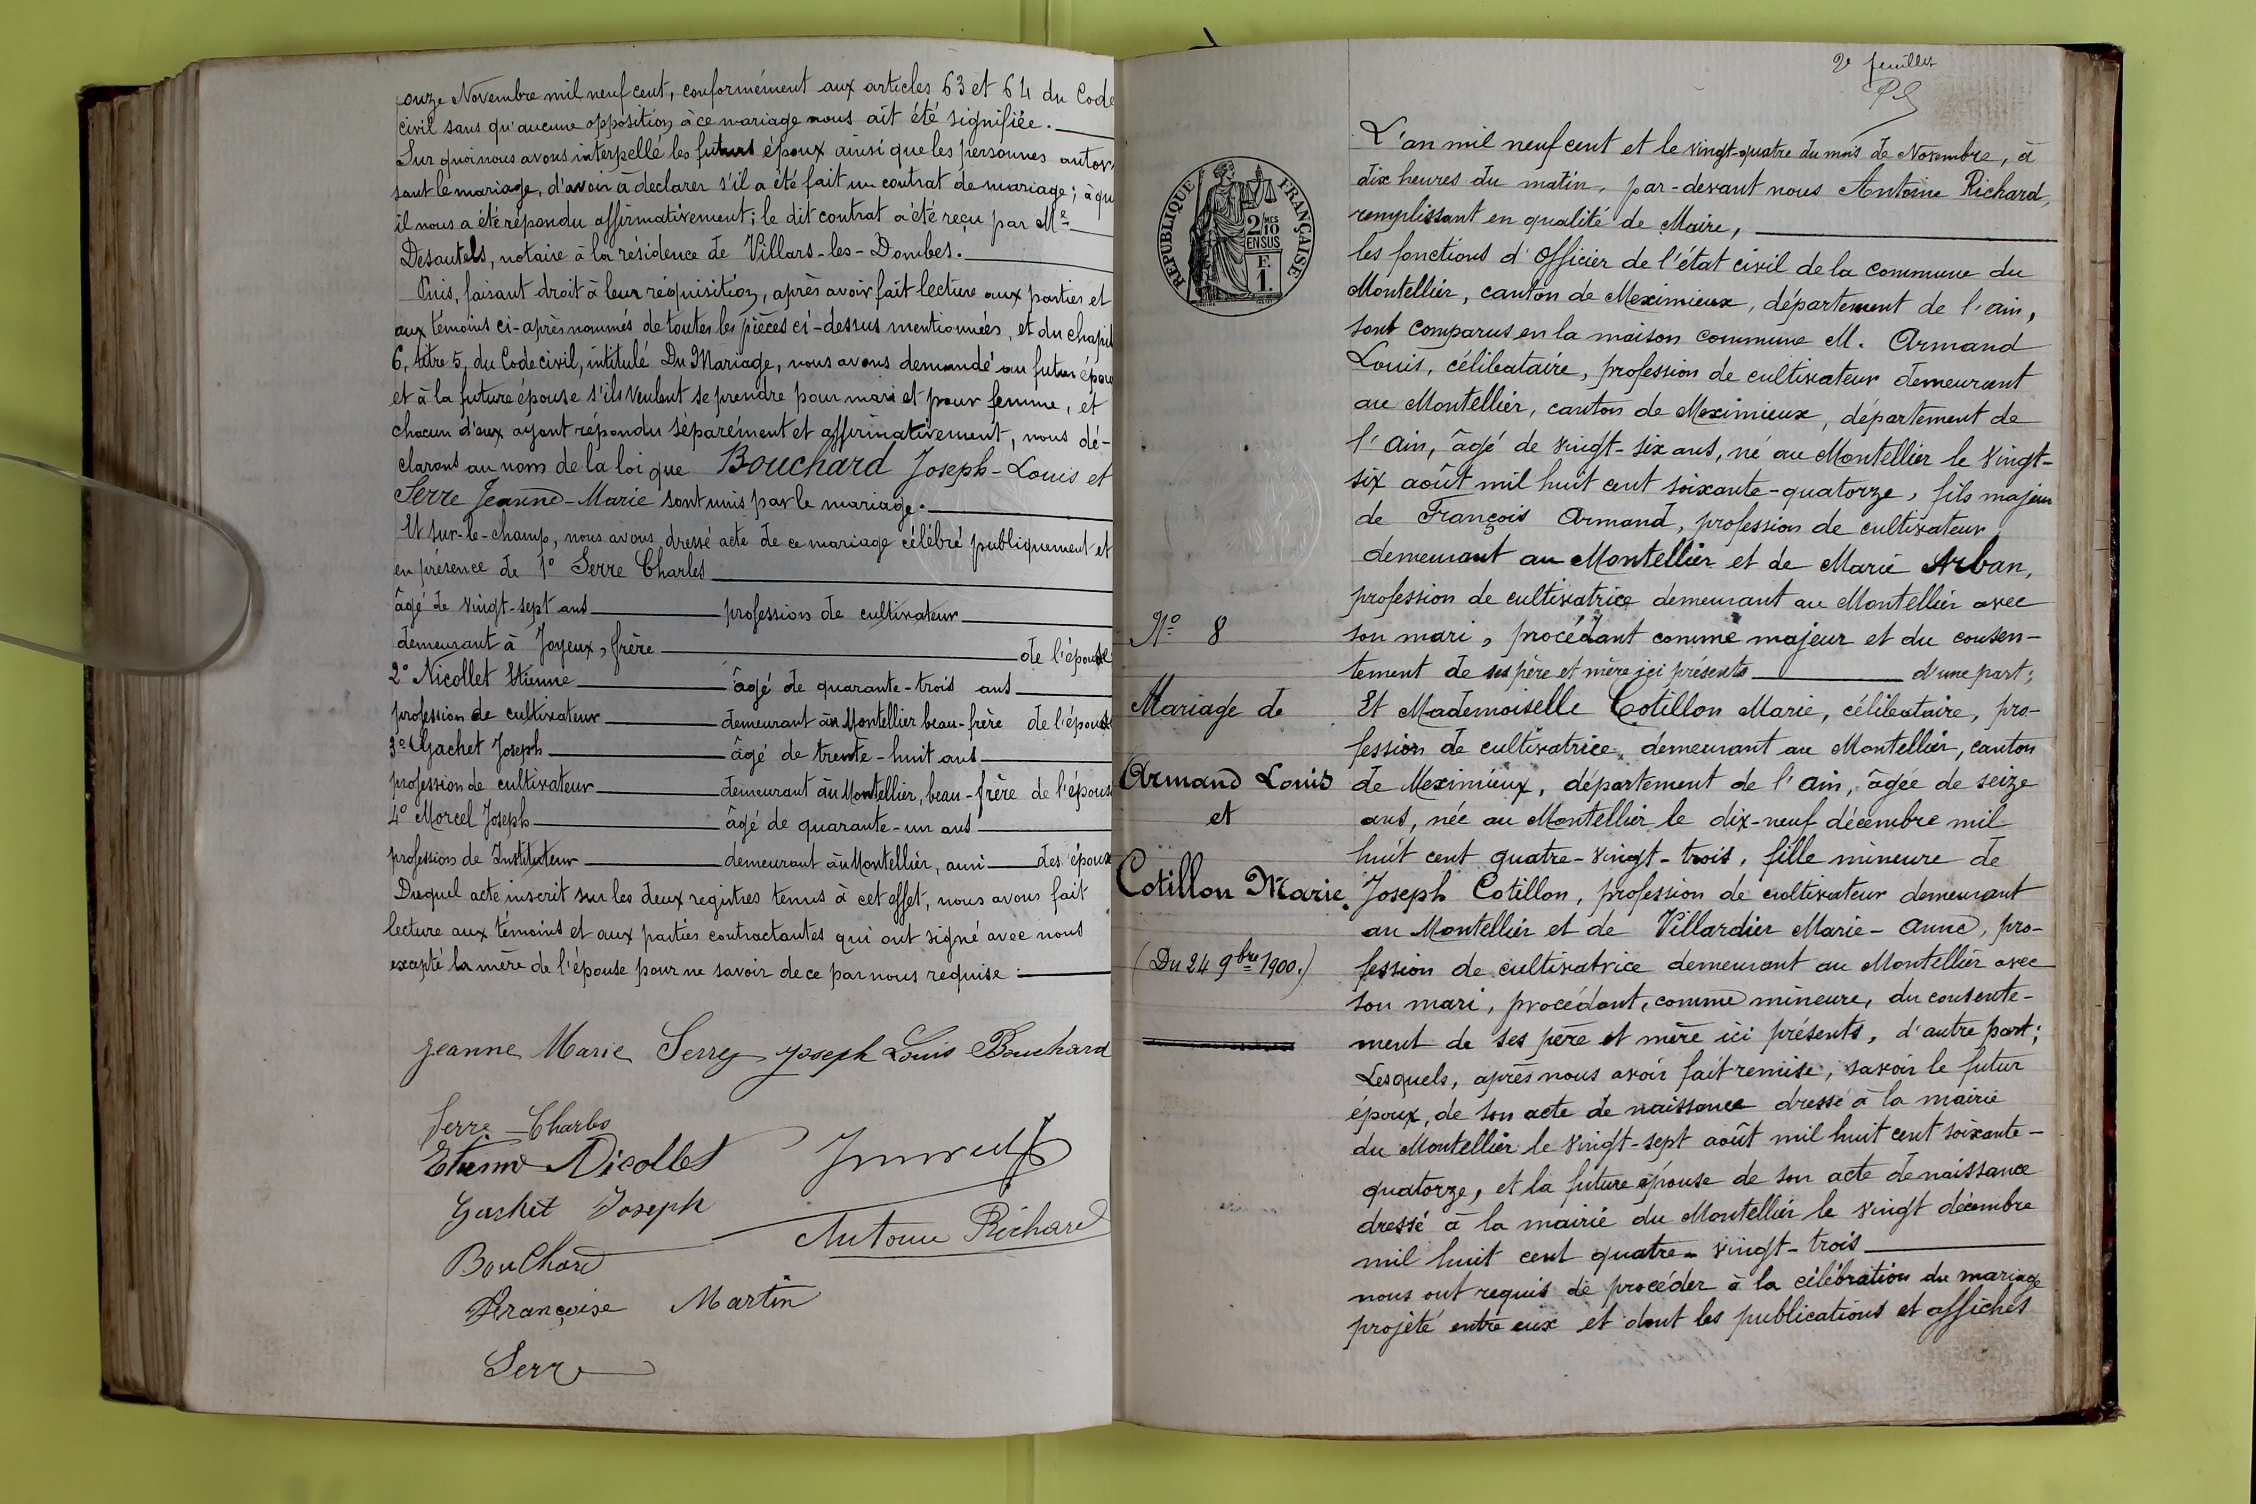 onze Novembre mil neuf cent, conformément aux articles 63 et 64 du Code
civil sans qu'aucune opposition à ce mariage nous ait été signifiée.
Sur quoi nous avons interpellé les futurs époux ainsi que les personnes autori
sant le mariage, d'avoir à déclarer s'il a été fait un contrat de mariage; à qu
il nous a été répondu affirmativement; le dit contrat a été reçu par Me
Desautels, notaire à la résidence de Villars-les-Dombes.
Puis, faisant droit à leur réquisition, après avoir fait lecture aux parties et
aux témoins ci-après nommés de toutes les pièces ci-dessus mentionnées, et du chapit
6, titre 5, du Code civil, intitulé Du Mariage, nous avons demandé au futur épou
et à la future épouse s'ils veulent se prendre pour mari et pour femme, et
chacun d'eux ayant répondu séparément et affirmativement, nous dé-
clarons au nom de la loi que Bouchard Joseph-Louis et
Serre Jeanne-Marie sont unis par le mariage.
Et sur-le-champ, nous avons dressé acte de ce mariage célébré publiquement et
en présence de 1° Serre Charles
âgé de vingt-sept ans profession de cultivateur
demeurant à Joyeux, frère de l'épouse
2° Nicollet Etienne âgé de quarante-trois ans
profession de cultivateur demeurant au Montellier beau-frère de l'épouse
3° Gachet Joseph âgé de trente-huit ans
profession de cultivateur demeurant au Montellier, beau-frère de l'épous
4° Morcel Joseph âgé de quarante-un ans
profession de Instituteur demeurant au Montellier, ami des époux
Duquel acte inscrit sur les deux registres tenus à cet effet, nous avons fait
lecture aux témoins et aux parties contractantes qui ont signé avec nous
excepté la mère de l'épouse pour ne savoir de ce par nous requise :
Jeanne Marie Serre Joseph Louis Bouchard
Serre Charles
Etienne Nicollet
Gachet Joseph
Antoine Richard
Bouchard
Françoise Martin
Serre
2e feuillet
L'an mil neuf cent et le vingt-quatre du mois de Novembre, à
dix heures du matin, par-devant nous Antoine Richard,
remplissant en qualité de Maire,
les fonctions d'Officier de l'état civil de la commune du
Montellier, canton de Meximieux, département de l'ain,
sont comparus en la maison commune M. Armand
Louis, célibataire, profession de cultivateur demeurant
au Montellier, canton de Meximieux, département de
l'ain, âgé de vingt-six ans, né au Montellier le vingt-
six août mil huit cent soixante-quatorze, fils majeur
de François Armand, profession de cultivateur
demeurant au Montellier et de Marie Arban,
profession de cultivatrice demeurant au Montellier avec
son mari, procédant comme majeur et du consen-
tement de ses père et mère ici présents d'une part;
Et Mademoiselle Cotillon Marie, célibataire, pro-
fession de cultivatrice, demeurant au Montellier, canton
de Meximieux, département de l'ain, âgée de seize
ans, née au Montellier le dix-neuf décembre mil
huit cent quatre-vingt-trois, fille mineure de
Joseph Cotillon, profession de cultivateur demeurant
au Montellier et de Villardier Marie-Anne, pro-
fession de cultivatrice demeurant au Montellier avec
son mari, procédant, comme mineure, du consente-
ment de ses père et mère ici présents, d'autre part;
Lesquels, après nous avoir fait remise, savoir le futur
époux, de son acte de naissance dressé à la mairie
du Montellier le vingt-sept août mil huit cent soixante-
quatorze, et la future épouse de son acte de naissance
dressé à la mairie du Montellier le vingt décembre
mil huit cent quatre-vingt-trois
nous ont requis de procéder à la célébration du mariage
projeté entre eux et dont les publications et affiches
RÉPUBLIQUE FRANÇAISE
2/10
EN SUS
F.
1.
N° 8
Mariage de
Armand Louis
et
Cotillon Marie.
(Du 24 9bre 1900.)